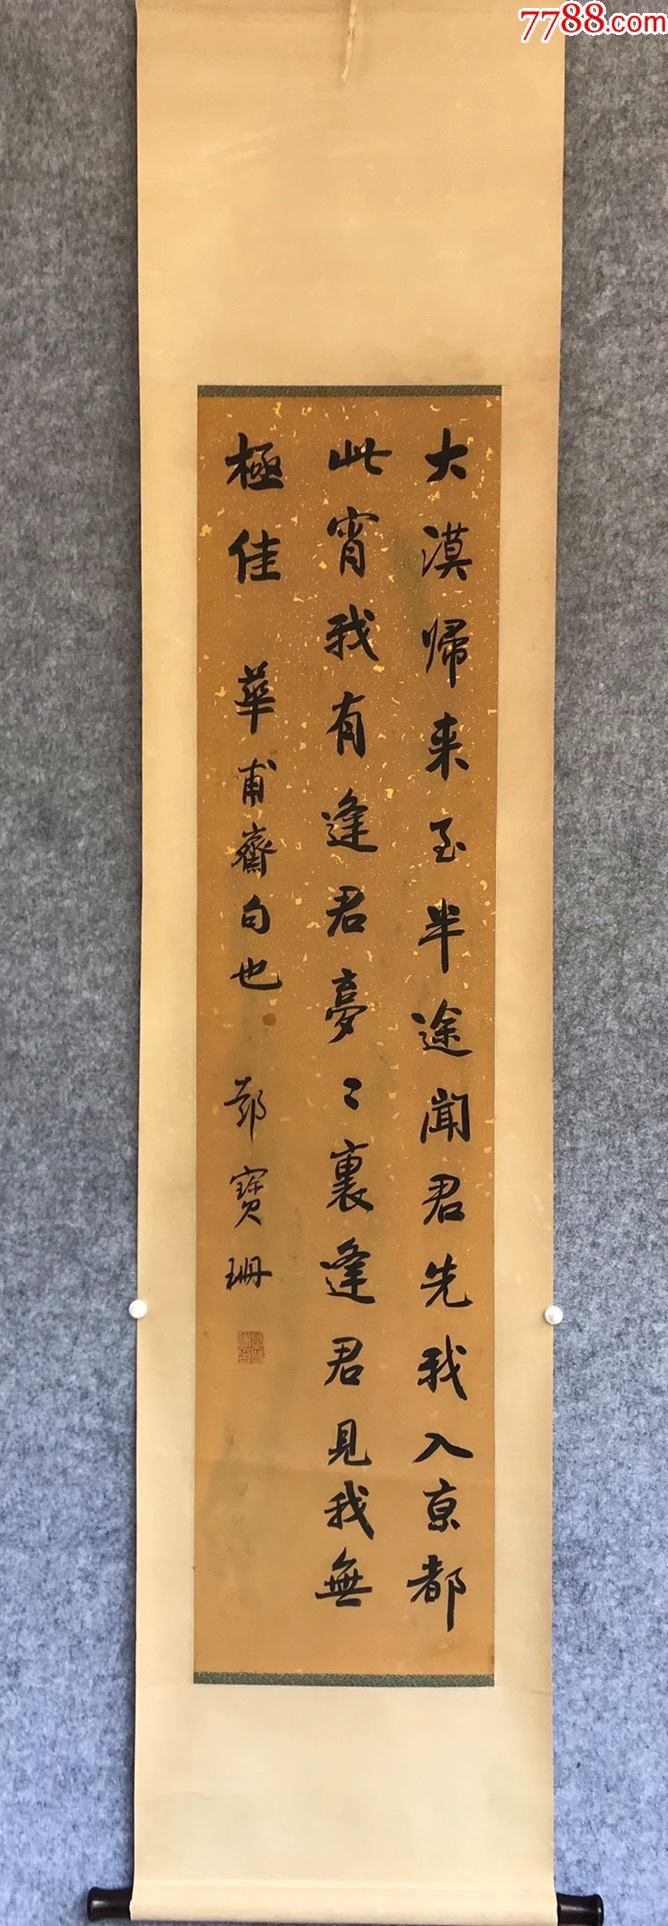 7788.com
大漠歸来至半途聞君先我入京都
此宵我有逢君夢〻裏逢君見我無
極佳 華甫齋句也 鄭寶珊